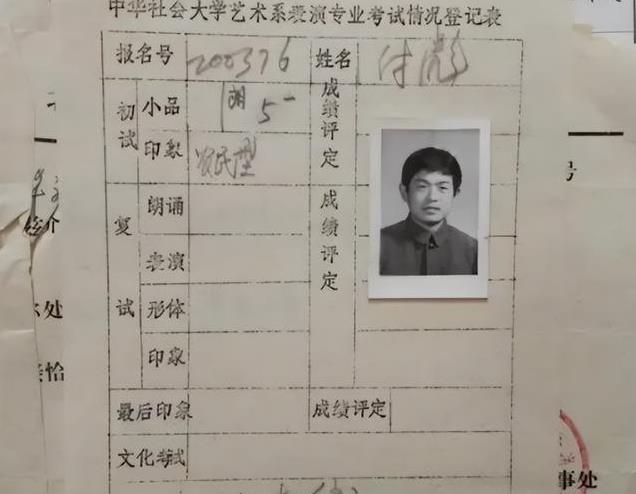 中华社会大学艺术系表演专业考试情况登记表
报名号 200376 姓名 付彪
初试 小品 5 成绩评定
印象 农民型
复试 朗诵 成绩评定
表演
形体
印象
最后印象 成绩评定
文化考试
号
介
处
恰
事处